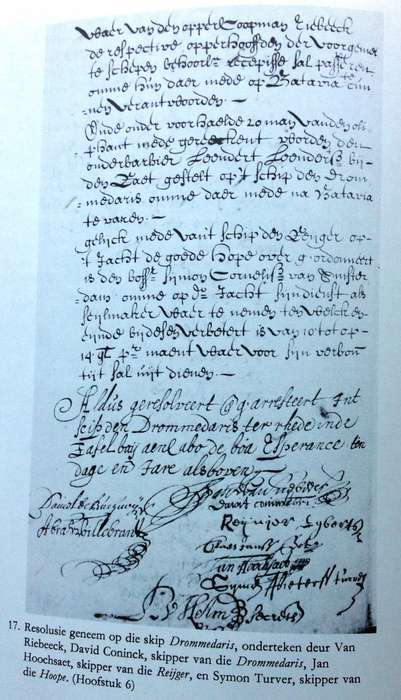 Waer van den opper Coopman Riebeeck
de respective opperhooffden der voorgemel
te schepen behoorl recepisse sal passeren
omme hun daer mede op Batavia te cun
nen verantwoorden. —
Ende onder voorhaelde 20 man vanden oli
phant mede gereekent worden den
onderbarbier Leendert Leenderts bij
den Raet gestelt op't schip den Drom
medaris omme daer mede na Batavia
te varen. —
gelijck mede van't schip den Reijger op
t Jacht de goede Hope over g'ordonneert
is den Sijmon Cornelisz van Amster
dam omme op Jacht sijn dienst als
seijlmaker waer te nemen ten welcken
eijnde bij desen verbetert is van 10 tot op
14 gl pr maent waer voor sijn verbon
tijt sal uijt dienen. —
Aldus geresolveert & g'arresteert Int
schip den Drommedaris ter rhede inde
Tafelbay aen Cabo de boa Esperance ten
dage en Jare als boven —
Davit Coninck
Reijnier
Jan Hoochsaet
Symon Pieters Turver
Secrets
17. Resolusie geneem op die skip Drommedaris, onderteken deur Van
Riebeeck, David Coninck, skipper van die Drommedaris, Jan
Hoochsaet, skipper van die Reijger, en Symon Turver, skipper van
die Hoope. (Hoofstuk 6)